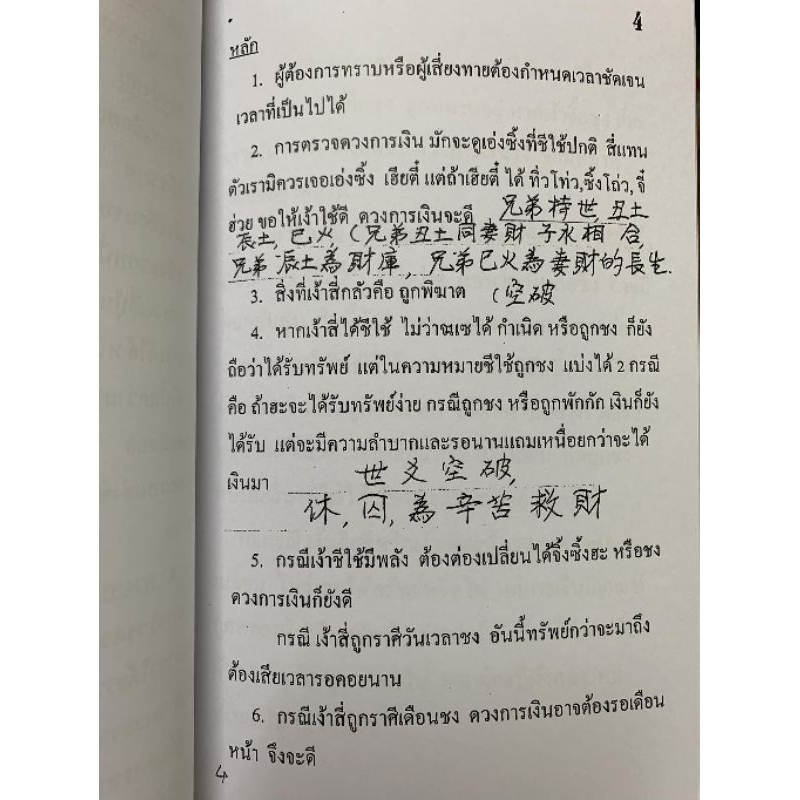 4
หลัก
1. ผู้ต้องการทราบหรือผู้เสี่ยงทายต้องกำหนดเวลาชัดเจน
เวลาที่เป็นไปได้
2. การตรวจดวงการเงิน มักจะดูเอ่งซิ้งที่ชีใช้ปกติ สี่แทน
ตัวเรามิควรเจอเอ่งซิ้ง เฮียตี๋ แต่ถ้าเฮียตี๋ ได้ ทิ่วโท่ว,ซิ้งโถ่ว,จี๋
ฮ่วย ขอให้เง้าใช้ดี ดวงการเงินจะดี 兄弟持世,丑土
辰土,巳火,(兄弟丑土同妻財 子水相合,
兄弟 辰土為財庫, 兄弟巳火為妻財的長生.
3. สิ่งที่เง้าสี่กลัวคือ ถูกพิฆาต (空破
4. หากเง้าสี่ได้ชีใช้ ไม่ว่าณเซได้ กำเนิด หรือถูกชง ก็ยัง
ถือว่าได้รับทรัพย์ แต่ในความหมายชีใช้ถูกชง แบ่งได้ 2 กรณี
คือ ถ้าฮะจะได้รับทรัพย์ง่าย กรณีถูกชง หรือถูกพักกัก เงินก็ยัง
ได้รับ แต่จะมีความลำบากและรอนานแถมเหนื่อยกว่าจะได้
เงินมา 世爻空破,
休,囚,為辛苦救財
5. กรณีเง้าชีใช้มีพลัง ต้องต่องเปลี่ยนได้จิ้งซิ้งฮะ หรือชง
ดวงการเงินก็ยังดี
กรณี เง้าสี่ถูกราศีวันเวลาชง อันนี้ทรัพย์กว่าจะมาถึง
ต้องเสียเวลารอคอยนาน
6. กรณีเง้าสี่ถูกราศีเดือนชง ดวงการเงินอาจต้องรอเดือน
หน้า จึงจะดี
4